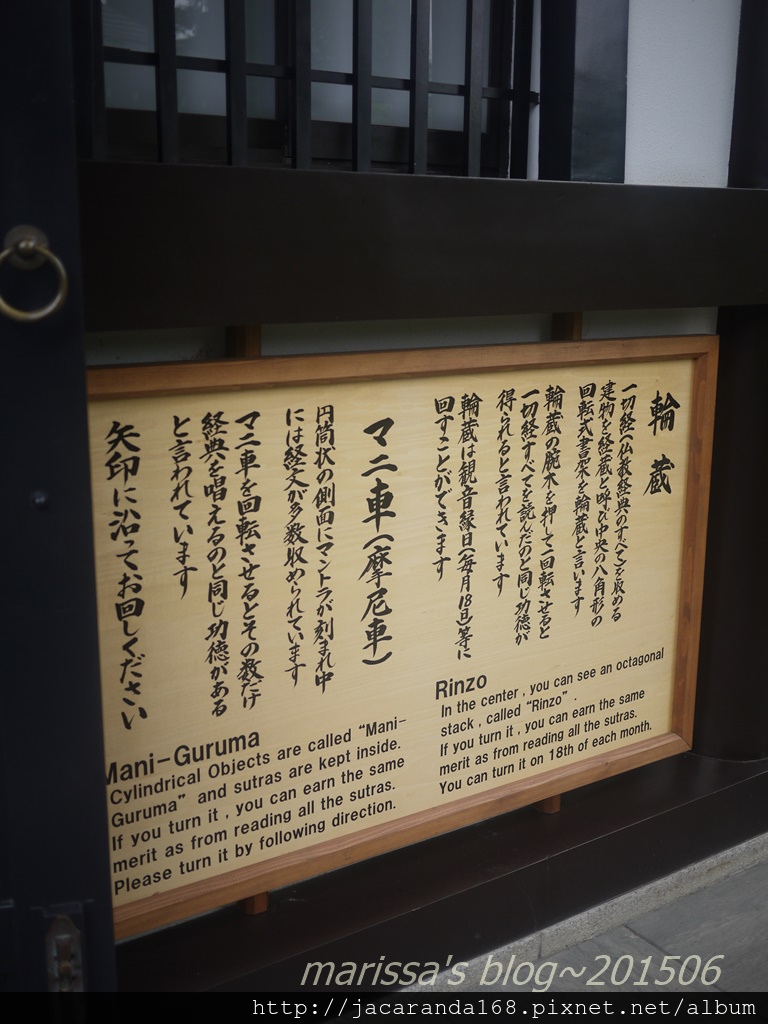 輪蔵
一切経(仏教経典のすべて)を収める
建物を経蔵と呼び中央の八角形の
回転式書架を輪蔵と言います
輪蔵の腕木を押して一回転させると
一切経すべてを読んだのと同じ功徳が
得られると言われています
輪蔵は観音縁日(毎月18日)等に
回すことができます
マニ車(摩尼車)
円筒状の側面にマントラが刻まれ中
には経文が多数収められています
マニ車を回転させるとその数だけ
経典を唱えるのと同じ功徳がある
と言われています
矢印に沿ってお回しください
Rinzo
In the center , you can see an octagonal
stack , called "Rinzo" .
If you turn it , you can earn the same
merit as from reading all the sutras.
You can turn it on 18th of each month.
Mani-Guruma
Cylindrical Objects are called "Mani-
Guruma" and sutras are kept inside.
If you turn it , you can earn the same
merit as from reading all the sutras.
Please turn it by following direction.
marissa's blog~201506
http://jacaranda168.pixnet.net/album